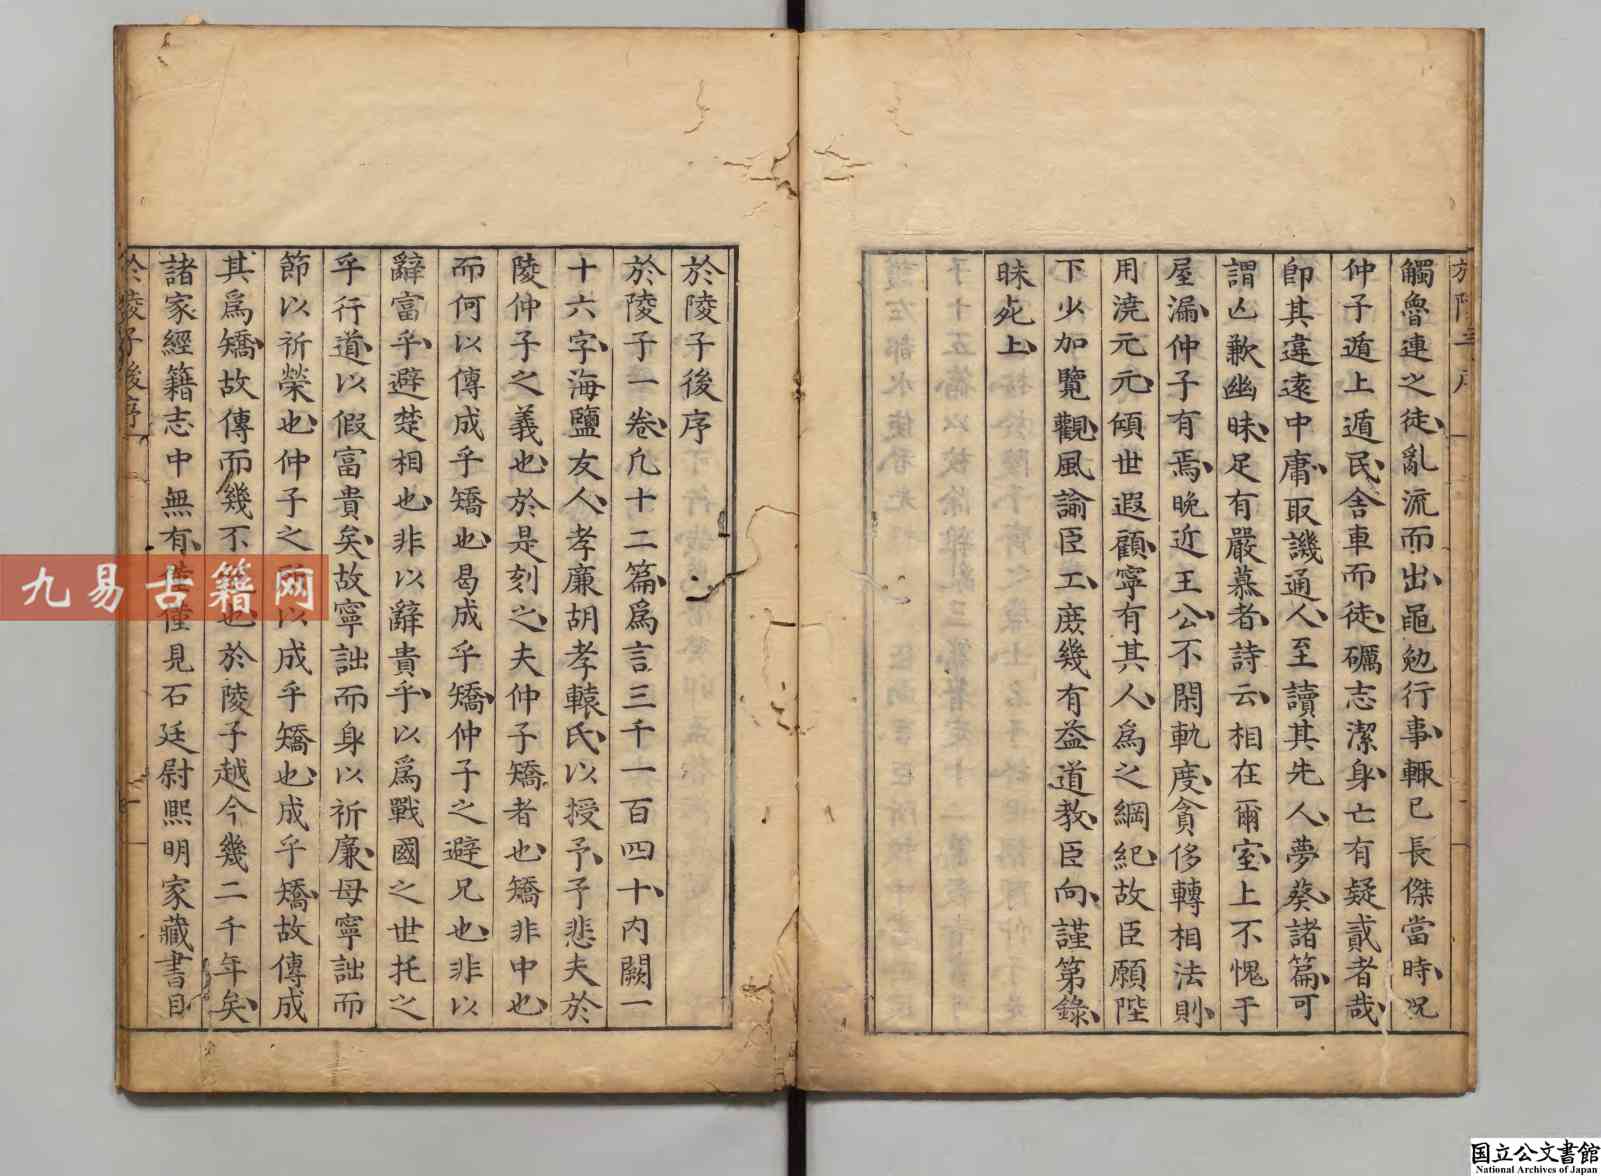 觸魯連之徒亂流而出黽勉行事輙已長傑當時况
仲子遁上遁民舍車而徒礪志潔身亡有疑貳者哉
卽其違遠中庸取譏通人至讀其先人夢葵諸篇可
謂亾歉幽昧足有嚴慕者詩云相在爾室上不愧于
屋漏仲子有焉晚近王公不閑軌度貪侈轉相法則
用澆元元傾世遐顧寧有其人爲之綱紀故臣願陛
下少加覽觀風諭臣工庶幾有益道敎臣向謹第錄
昧死上
於陵子後序
於陵子一卷凡十二篇爲言三千一百四十内闕一
十六字海鹽友人孝廉胡孝轅氏以授予予悲夫於
陵仲子之義也於是刻之夫仲子矯者也矯非中也
而何以傳成乎矯也曷成乎矯仲子之避兄也非以
辭富乎避楚相也非以辭貴乎以爲戰國之世托之
乎行道以假富貴矣故寧詘而身以祈廉母寧詘而
節以祈榮也仲子之所以成乎矯也成乎矯故傳成
其爲矯故傳而幾不也於陵子越今幾二千年矣
諸家經籍志中無有僅見石廷尉熙明家藏書目
於陵子後序
九易古籍网
国立公文書館
National Archives of Japan